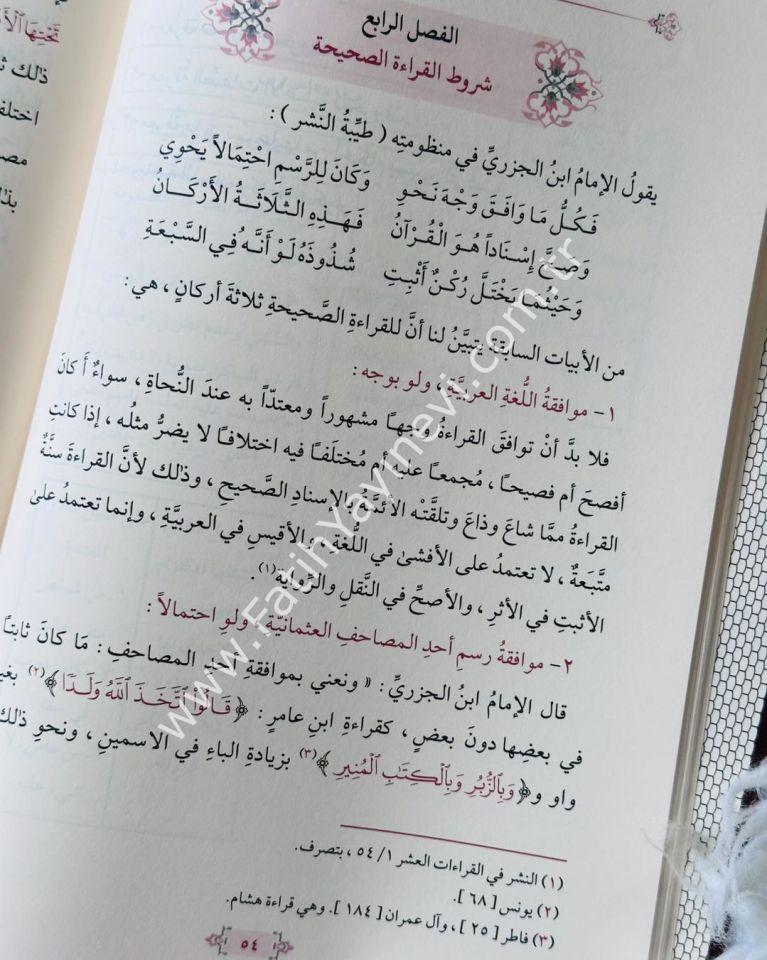 الفصل الرابع
شروط القراءة الصحيحة
يقولُ الإمامُ ابنُ الجزريِّ في منظومتِه ( طيِّبةُ النَّشر ) :
فَكُلُّ مَا وَافَقَ وَجْهَ نَحْوِ وَكَانَ لِلرَّسْمِ احْتِمَالاً يَحْوِي
وَصَحَّ إِسْنَاداً هُوَ الْقُرْآنُ فَهَذِهِ الثَّلَاثَةُ الأَرْكَانُ
وَحَيْثُمَا يَخْتَلَّ رُكْنٌ أَثْبِتِ شُذُوذَهُ لَوْ أَنَّهُ فِي السَّبْعَةِ
من الأبيات السابقة يتبيَّنُ لنا أنَّ للقراءةِ الصَّحيحةِ ثلاثةَ أركانٍ ، هي :
١- موافقةُ اللُّغةِ العربيَّةِ ، ولو بوجه :
فلا بدَّ أنْ توافقَ القراءةُ وجهاً مشهوراً ومعتدّاً به عندَ النُّحاةِ ، سواءٌ أَكانَ
أفصحَ أم فصيحاً ، مُجمعاً عليه أم مُختلَفاً فيه اختلافاً لا يضرُّ مثلُه ، إذا كانتِ
القراءةُ ممَّا شاعَ وذاعَ وتلقَّتْه الأئمَّةُ بالإسنادِ الصَّحيحِ ، وذلك لأنَّ القراءةَ سنَّةٌ
متَّبَعةٌ ، لا تعتمدُ على الأفشىٰ في اللُّغةِ ، والأقيسِ في العربيَّةِ ، وإنما تعتمدُ علىٰ
الأثبتِ في الأثرِ ، والأصحِّ في النَّقلِ والرِّوايةِ(١) .
٢- موافقةُ رسمِ أحدِ المصاحفِ العثمانيّةِ ، ولو احتمالاً :
قال الإمامُ ابنُ الجزريِّ : « ونعني بموافقةِ أحدِ المصاحفِ : مَا كانَ ثابتاً
في بعضِها دونَ بعضٍ ، كقراءةِ ابنِ عامرٍ : ﴿ قَالُواْ ٱتَّخَذَ ٱللَّهُ وَلَدًا ﴾(٢) بغير
واو و﴿ وَبِٱلزُّبُرِ وَبِٱلْكِتَٰبِ ٱلْمُنِيرِ ﴾(٣) بزيادةِ الباءِ في الاسمينِ ، ونحوِ ذٰلك
(١) النشر في القراءات العشر ١/ ٥٤ ، بتصرف.
(٢) يونس [ ٦٨ ].
(٣) فاطر [ ٢٥ ]، وآل عمران [ ١٨٤ ]. وهي قراءة هشام.
٥٤
www.FatihYayinevi.com.tr